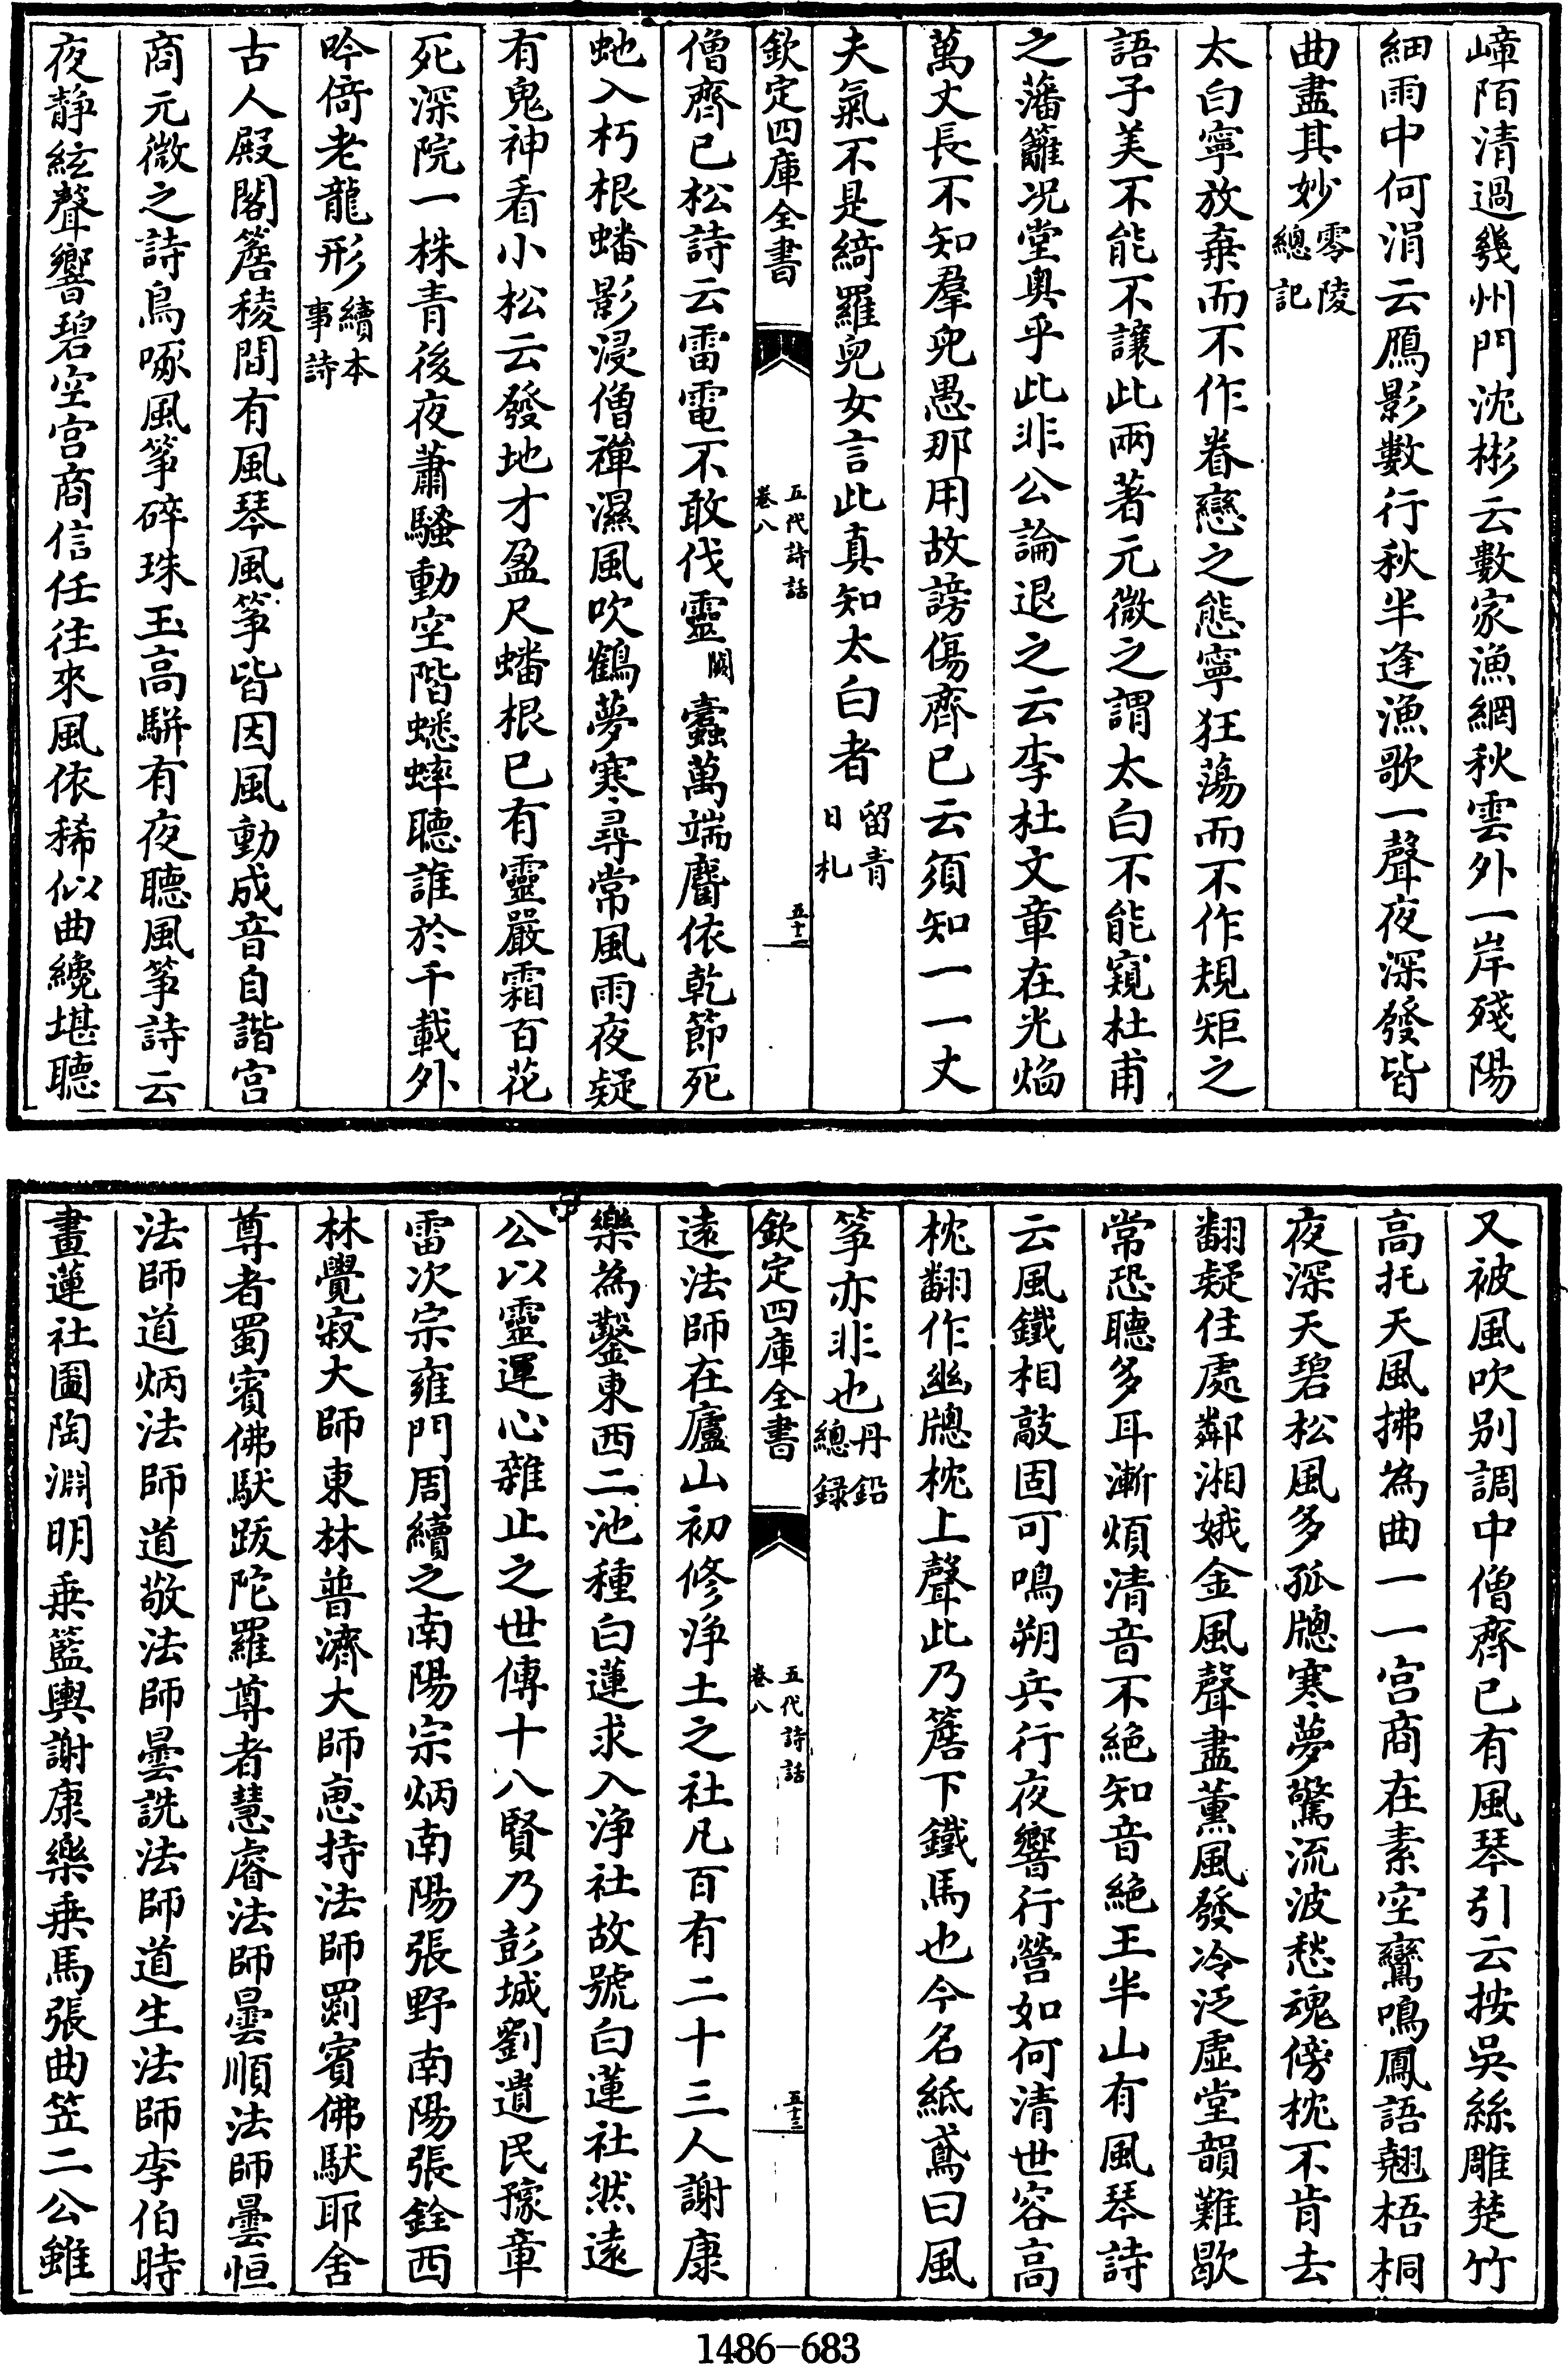 嶂陌清過幾州門沈彬云數家漁網秋雲外一岸殘陽
細雨中何涓云鴈影數行秋半逢漁歌一聲夜深發皆
曲盡其妙零陵總記
太白寧放棄而不作眷戀之態寧狂蕩而不作規矩之
語子美不能不讓此兩著元微之謂太白不能窺杜甫
之藩籬况堂奥乎此非公論退之云李杜文章在光燄
萬丈長不知羣兒愚那用故謗傷齊已云須知一一丈
夫氣不是綺羅兒女言此真知太白者留青日札
欽定四庫全書 五代詩話 卷八 五十一
僧齊已松詩云雷電不敢伐靈闕蠹萬端麿依乾節死
虵入朽根蟠影浸僧禪濕風吹鶴夢寒尋常風雨夜疑
有鬼神看小松云發地才盈尺蟠根已有靈嚴霜百花
死深院一株青後夜蕭騷動空階蟋蟀聽誰於千載外
吟倚老龍形續本事詩
古人殿閣簷稜間有風琴風箏皆因風動成音自諧宫
商元微之詩鳥啄風箏碎珠玉高駢有夜聽風箏詩云
夜靜絃聲響碧空宫商信任往來風依稀似曲纔堪聽
又被風吹别調中僧齊已有風琴引云按吳絲雕楚竹
高托天風拂為曲一一宫商在素空鸞鳴鳳語翹梧桐
夜深天碧松風多孤牕寒夢驚流波愁魂傍枕不肯去
翻疑住處鄰湘娥金風聲盡薰風發冷泛虛堂韻難歇
常恐聽多耳漸煩清音不絶知音絶王半山有風琴詩
云風鐵相敲固可鳴朔兵行夜響行營如何清世容高
枕翻作幽牕枕上聲此乃簷下鐵馬也今名紙鳶曰風
箏亦非也丹鉛總録
欽定四庫全書 五代詩話 卷八 五十二
遠法師在廬山初修淨土之社凡百有二十三人謝康
樂為鑿東西二池種白蓮求入淨社故號白蓮社然遠
公以靈運心雜止之世傳十八賢乃彭城劉遺民豫章
雷次宗雍門周續之南陽宗炳南陽張野南陽張銓西
林覺寂大師東林普濟大師恵持法師罽賓佛馱耶舍
尊者蜀賓佛馱跋陀羅尊者慧睿法師曇順法師曇恒
法師道炳法師道敬法師曇詵法師道生法師李伯時
畫蓮社圖陶淵明乗籃輿謝康樂乗馬張曲笠二公雖
1486-683